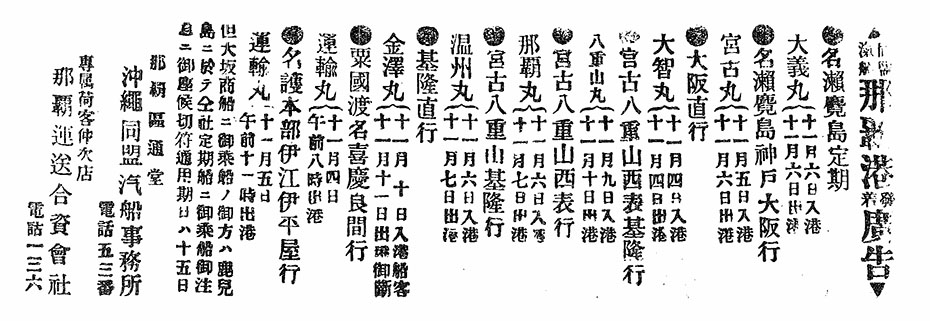 那覇港發着廣告
●名瀨鹿兒島定期
大義丸 十一月六日入港
十一月六日出港
●名瀨鹿兒島神戸大阪行
宮古丸 十一月五日入港
十一月五日出港
●大阪直行
大智丸 十一月四日入港
十一月四日出港
●宮古八重山西表基隆行
八重山丸 十一月九日入港
十一月十日出港
●宮古八重山西表行
那覇丸 十一月六日入港
十一月六日出港
●宮古八重山基隆行
温州丸 十一月六日入港
十一月七日出港
●基隆直行
金澤丸 十一月十日入港船客
十一月十一日出乘御斷
●粟國渡名喜慶良間行
運輸丸 十一月四日
午前八時出港
●名護本部伊江伊平屋行
運輸丸 十一月五日
午前十一時出港
但大坂商船ニ御乘船ノ御方ハ鹿兒
島ニ於テ仝社定期船ニ御乘船御注
意ニ御座候切符通用期日ハ十五日
那覇區通堂
沖繩同盟汽船事務所
電話五三番
專属荷客仲次店
那覇運送合資會社
電話一三六